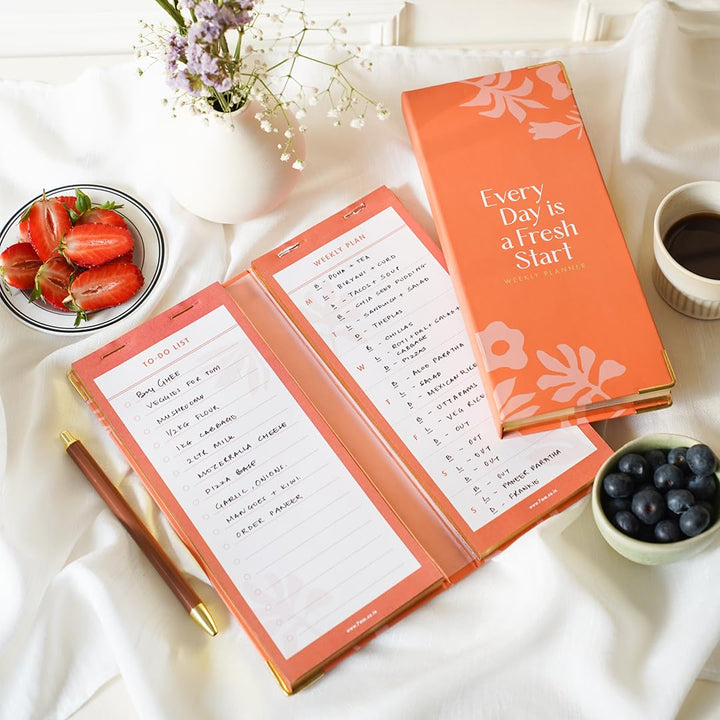 TO-DO LIST
BUY GHEE
VEGGIES FOR TOM
MUSHROOM
1/2KG FLOUR
1KG CABBAGE
2LTR MILK
MOZERRALLA CHEESE
PIZZA BASE
GARLIC, ONIONS,
MANGOES + KIWI
ORDER PANEER
WEEKLY PLAN
B - POHA + TEA
M L - BIRYANI + CURD
D - TACOS + SOUP
B - CHIA SEED PUDDING
T L - SANDWICH + SALAD
D - THEPLAS
B - CHILLAS
W L - ROTI + DAL + SALAD +
CABBAGE
D - PIZZAS
B - ALOO PARATHA
T L - SALAD
D - MEXICAN RICE
B - UTTAPAMS
F L - VEG RICE
D - OUT
B - OUT
S L - OUT
D - OUT
B - OUT
S L - PANEER PARATHA
D - FRANKIE
Every
Day is
a Fresh
Start
WEEKLY PLANNER